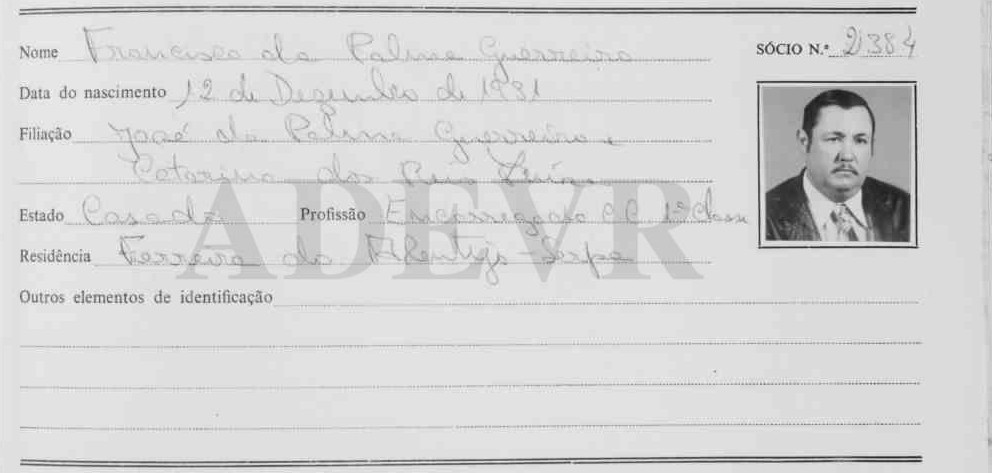 Nome Francisco da Palma Guerreiro SÓCIO N.º 2384
Data do nascimento 12 de Dezembro de 1931
Filiação José da Palma Guerreiro e
Catarina dos Reis
Estado Casado Profissão Encarregado C.C. 1ª Classe
Residência Ferreira do Alentejo - Serpa
ADEVR
Outros elementos de identificação